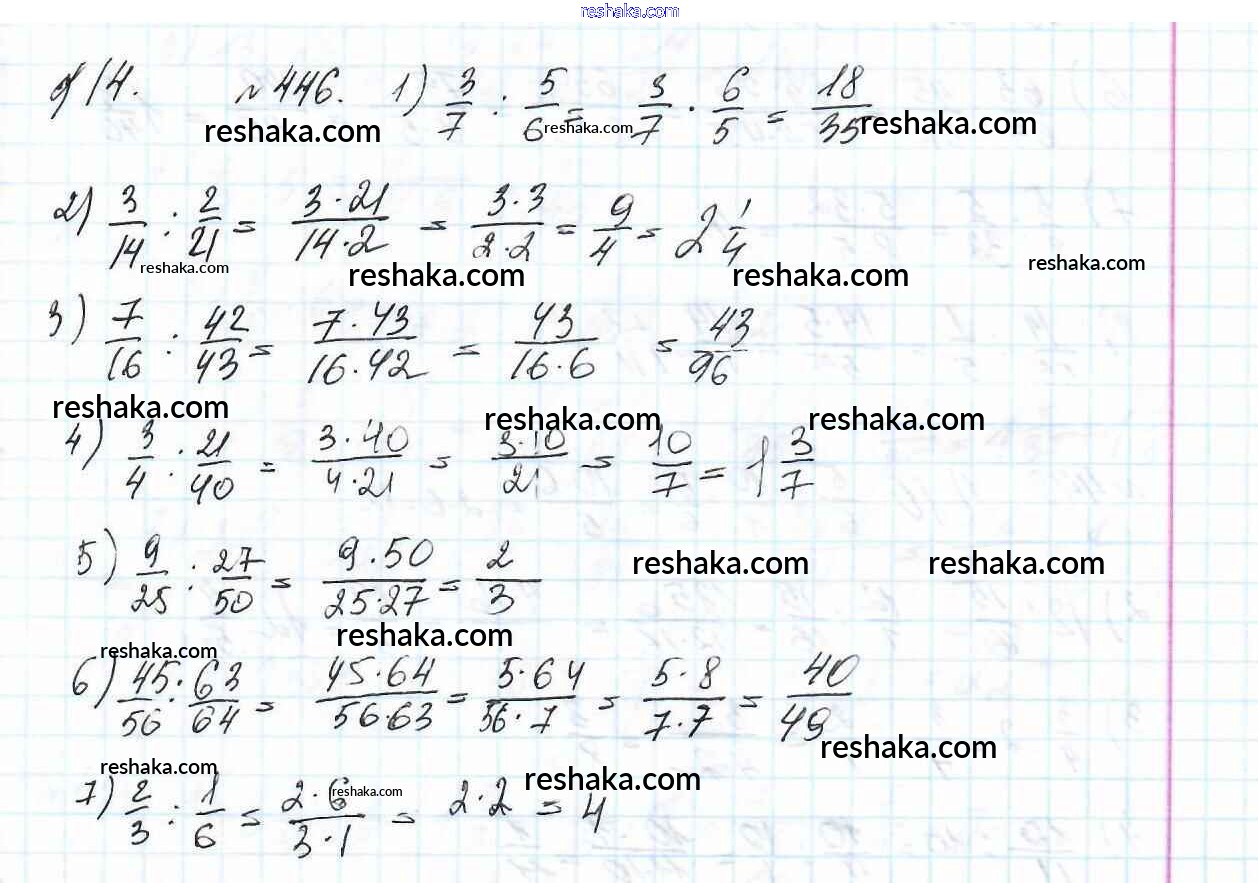 reshaka.com
§14. №446. 1) 3/7 : 5/6 = 3/7 · 6/5 = 18/35
reshaka.com reshaka.com reshaka.com
2) 3/14 : 2/21 = 3·21/14·2 = 3·3/2·2 = 9/4 = 2 1/4
reshaka.com reshaka.com reshaka.com reshaka.com
3) 7/16 : 42/43 = 7·43/16·42 = 43/16·6 = 43/96
reshaka.com reshaka.com reshaka.com
4) 3/4 : 21/40 = 3·40/4·21 = 3·10/21 = 10/7 = 1 3/7
5) 9/25 : 27/50 = 9·50/25·27 = 2/3
reshaka.com reshaka.com
reshaka.com reshaka.com
6) 45/56 : 63/64 = 45·64/56·63 = 5·64/56·7 = 5·8/7·7 = 40/49
reshaka.com
reshaka.com reshaka.com reshaka.com
7) 2/3 : 1/6 = 2·6/3·1 = 2·2 = 4